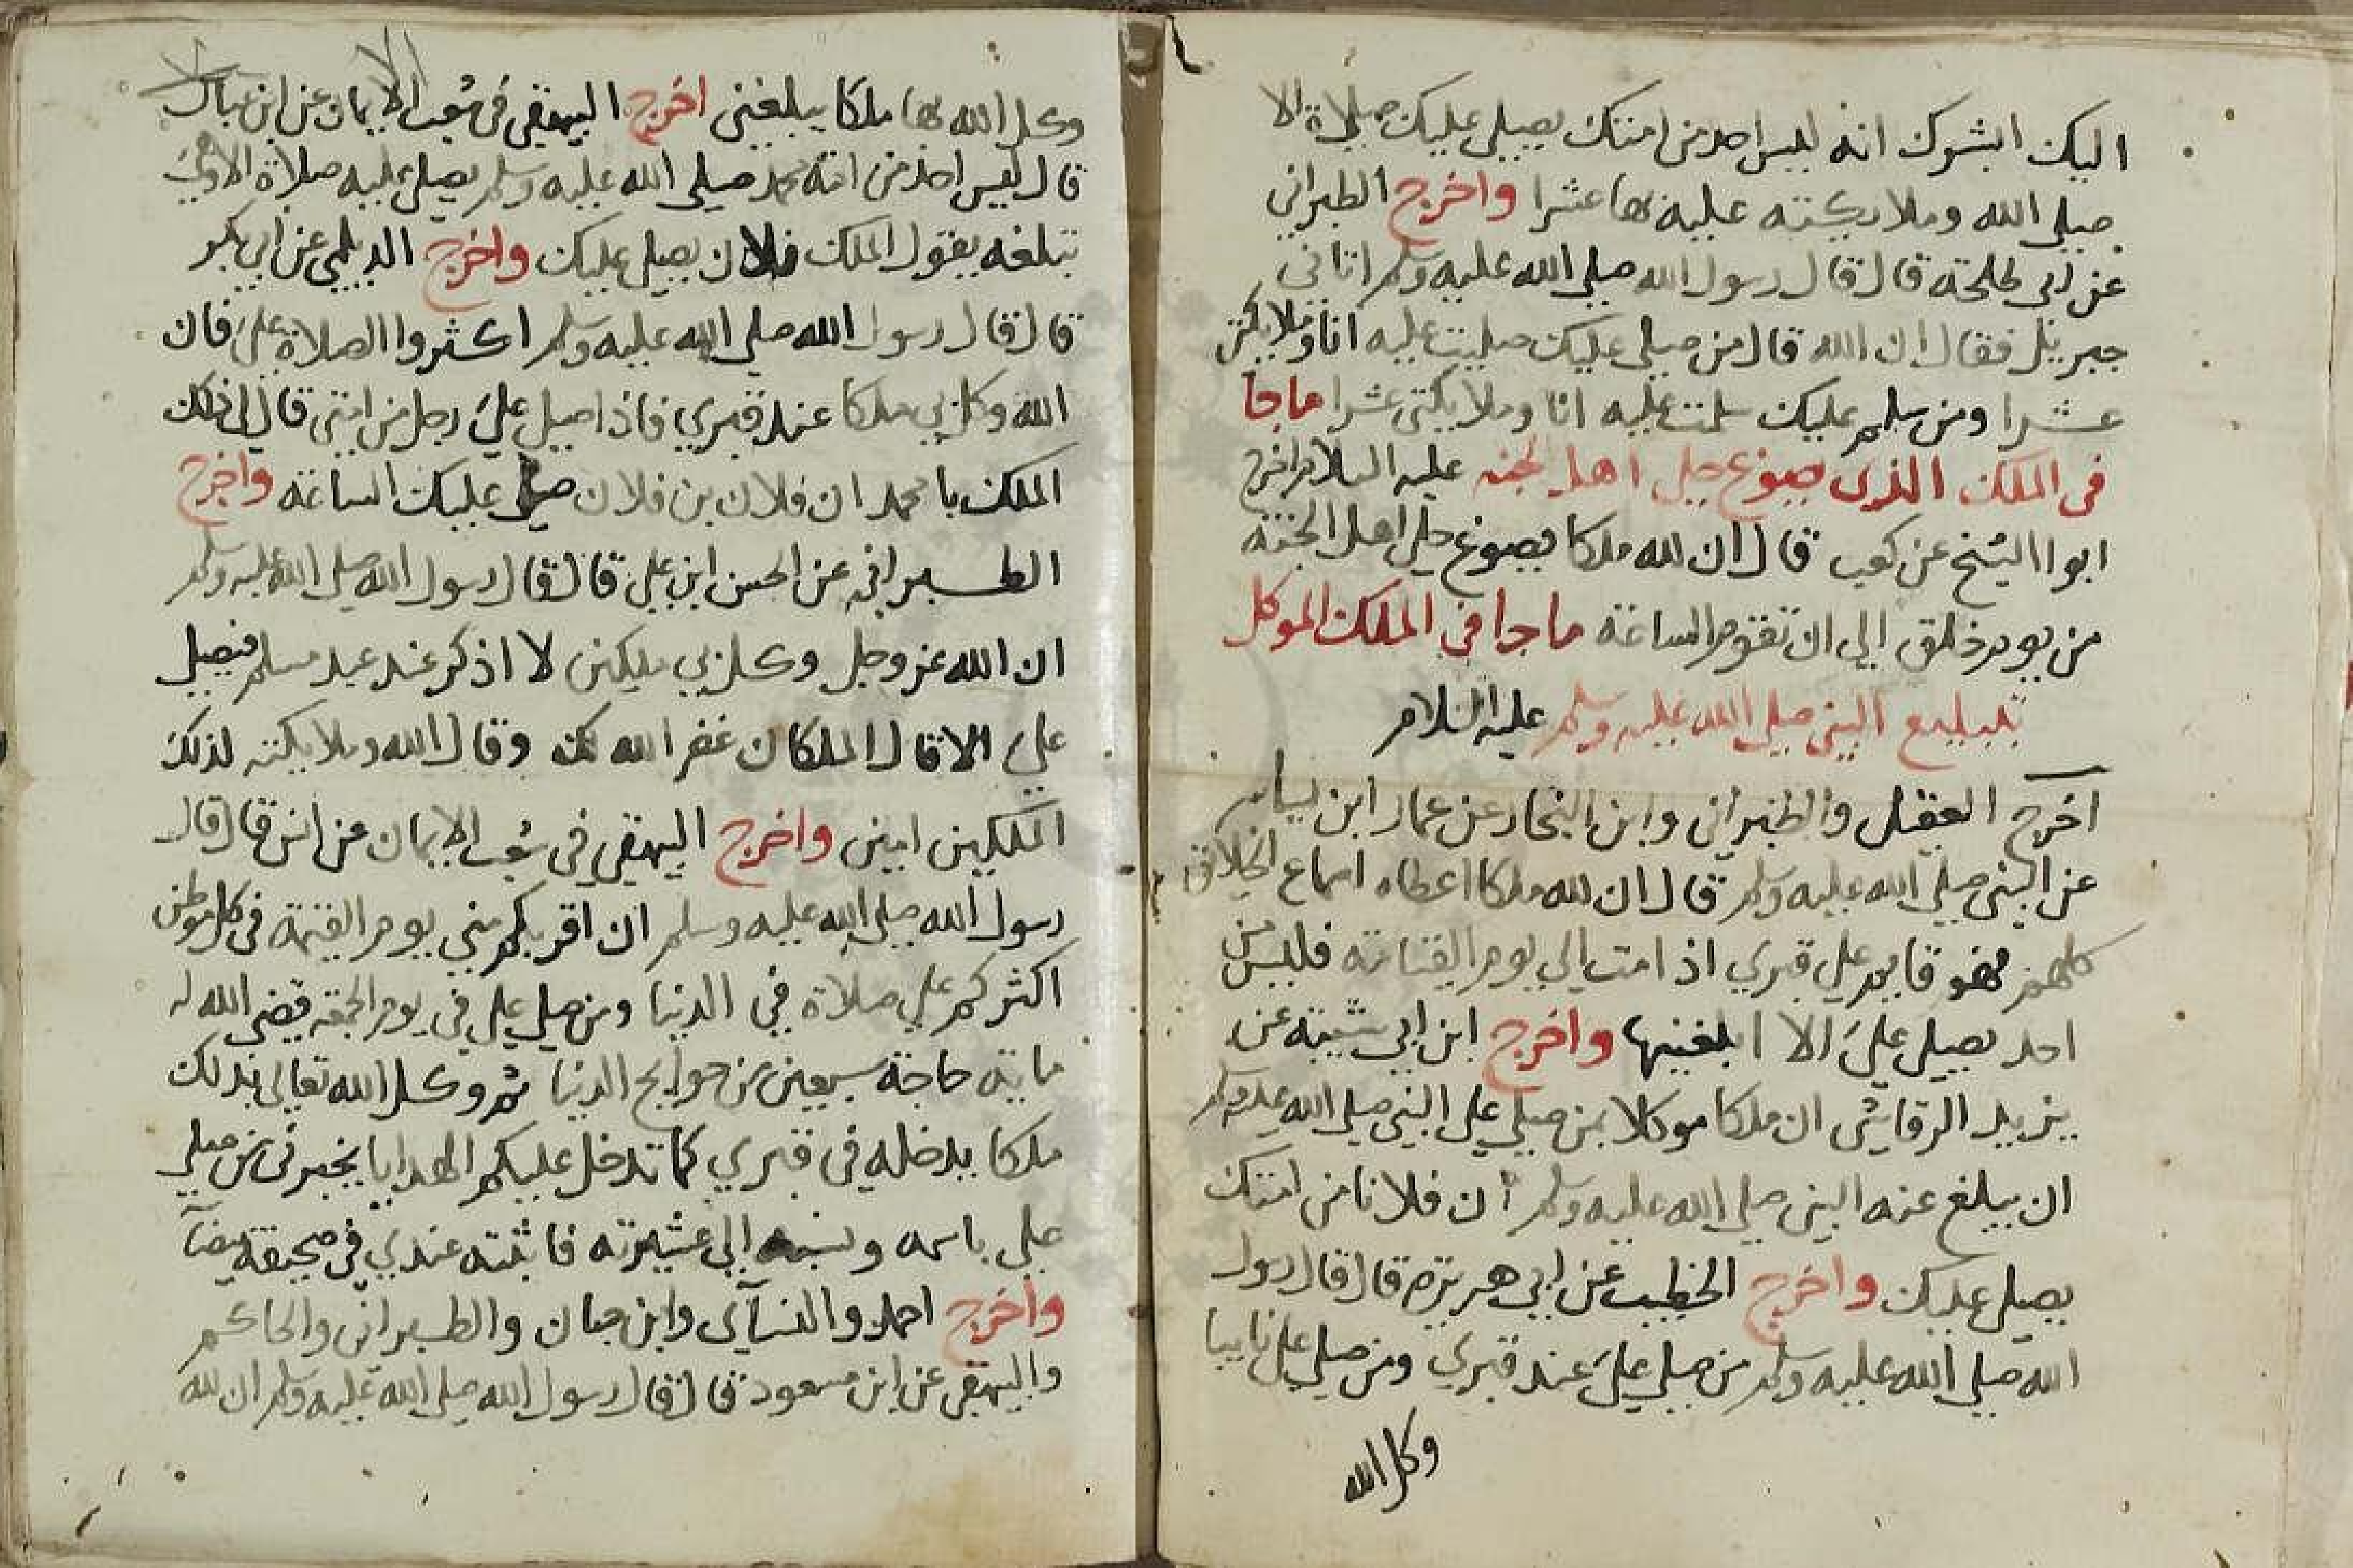 اليك ابشرك انه ليس احد من امتك يصلي عليك صلاة الا
صلي الله وملايكته عليه بها عشرا واخرج الطبراني
عن ابي طلحة قال قال رسول الله صلي الله عليه وسلم اتاني
جبريل فقال ان الله قال من صلي عليك صليت عليه انا وملايكتي
عشرا ومن سلم عليك سلمت عليه انا وملايكتي عشرا ماجا
في الملك الذي يصوغ حلي اهل الجنه عليه السلام اخرج
ابوا الشيخ عن كعب قال ان لله ملكا يصوغ حلي اهل الجنة
من يوم خلق الي ان تقوم الساعة ماجا في الملك الموكل
بتبليغ النبي صلي الله عليه وسلم عليه السلام
اخرج العقيلي والطبراني وابن النجار عن عمار ابن ياسر
عن النبي صلي الله عليه وسلم قال ان لله ملكا اعطاه اسماع الخلايق
كلهم فهو قايم علي قبري اذا مت الي يوم القيامة فليس من
احد يصلي علي الا ابلغنيها واخرج ابن ابي شيبة عن
يزيد الرقاشي ان ملكا موكلا بمن صلي علي النبي صلي الله عليه وسلم
ان يبلغ عنه النبي صلي الله عليه وسلم ان فلانا من امتك
يصلي عليك واخرج الخطيب عن ابي هريرة قال قال رسول
الله صلي الله عليه وسلم من صلي علي عند قبري ومن صلي علي نايبا
وكل الله
وكل الله بها ملكا يبلغني اخرج البيهقي في شعب الايمان عن ابن عباس
قال ليس احد من امة محمد صلي الله عليه وسلم يصلي عليه صلاة الا وهي
تبلغه يقول الملك فلان يصلي عليك واخرج الديلمي عن ابي بكر
قال قال رسول الله صلي الله عليه وسلم اكثروا الصلاة علي فان
الله وكل بي ملكا عند قبري فاذا صلي علي رجل من امتي قال لي ذلك
الملك يا محمد ان فلان بن فلان صلي عليك الساعة واخرج
الطبراني عن الحسن ابن علي قال قال رسول الله صلي الله عليه وسلم
ان الله عز وجل وكل بي ملكين لا اذكر عند عبد مسلم فيصلي
علي الا قال الملكان غفر الله لك وقال الله وملايكته لذلك
الملكين امين واخرج البيهقي في شعب الايمان عن انس قال قال
رسول الله صلي الله عليه وسلم ان اقربكم مني يوم القيمة في كل موطن
اكثركم علي صلاة في الدنيا ومن صلي علي في يوم الجمعة قضي الله له
ماية حاجة سبعين من حوايج الدنيا ثم وكل الله تعالي بذلك
ملكا يدخله في قبري كما تدخل عليكم الهدايا يخبرني من صلي
علي باسمه ونسبه الي عشيرته فاثبته عندي في صحيفة بيضآ
واخرج احمد والنسآي وابن حبان والطبراني والحاكم
والبيهقي عن ابن مسعود قال قال رسول الله صلي الله عليه وسلم ان لله